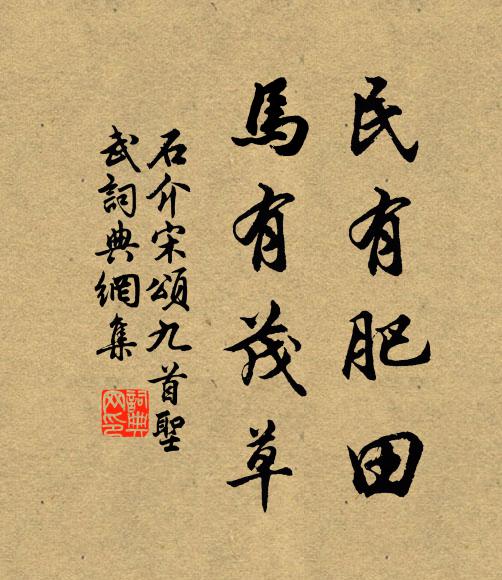 民有肥田
馬有茂草
石介宋頌九首聖
武詞典網集
詞典
网印